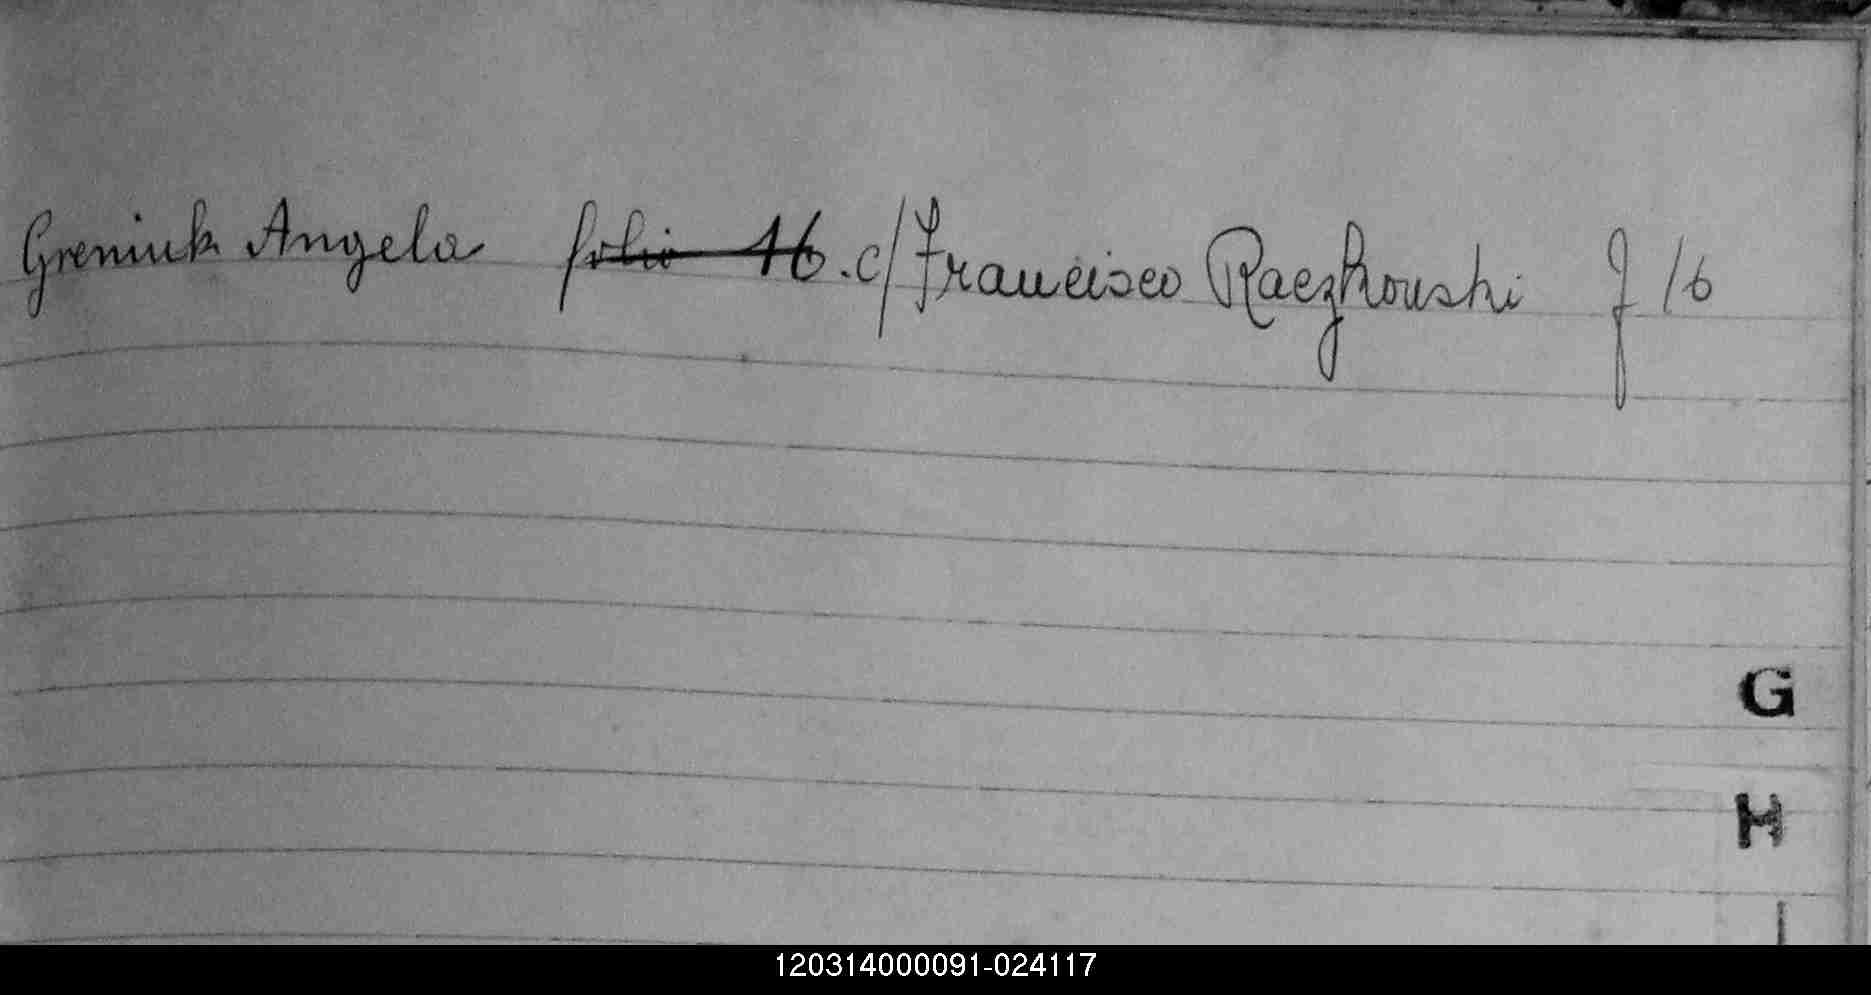 Greniuk Angela folio 16. c/ Francisco Raczkouski f 16
G
H
I
120314000091-024117